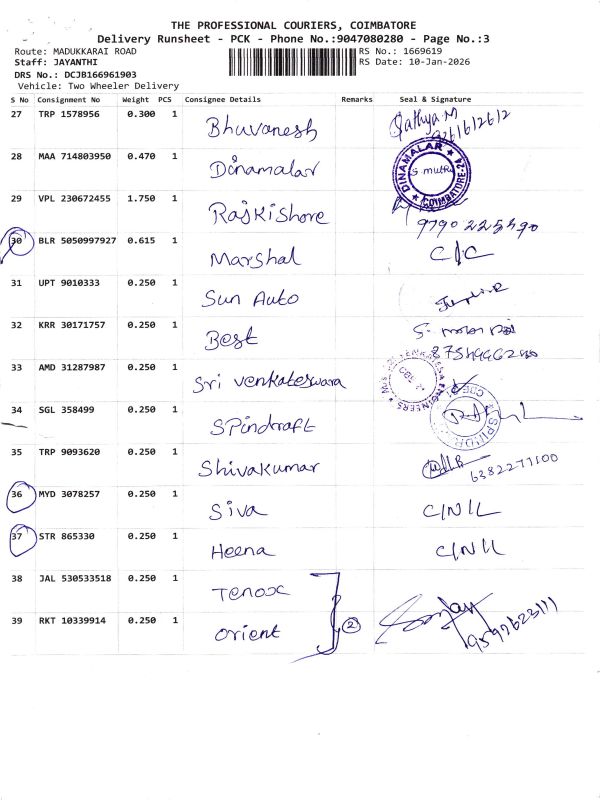 THE PROFESSIONAL COURIERS, COIMBATORE
Delivery Runsheet - PCK - Phone No.:9047080280 - Page No.:3
Route: MADUKKARAI ROAD RS No.: 1669619
Staff: JAYANTHI RS Date: 10-Jan-2026
DRS No.: DCJB166961903
Vehicle: Two Wheeler Delivery
S No Consignment No Weight PCS Consignee Details Remarks Seal & Signature
27 TRP 1578956 0.300 1 Bhuvanesh Sathya.M
9261612612
28 MAA 714803950 0.470 1 Dinamalar DINAMALAR COIMBATORE
29 VPL 230672455 1.750 1 RajKishore
9790225490
30 BLR 5050997927 0.615 1 Marshal C/C
31 UPT 9010333 0.250 1 Sun Auto
32 KRR 30171757 0.250 1 Best
33 AMD 31287987 0.250 1 Sri venkateswara ENGINEERS
34 SGL 358499 0.250 1 SPindraft
35 TRP 9093620 0.250 1 Shivakumar
6382271100
36 MYD 3078257 0.250 1 Siva C/N/L
37 STR 865330 0.250 1 Heena C/N/L
38 JAL 530533518 0.250 1 Tenox
39 RKT 10339914 0.250 1 Orient 2 Sanjay
9597623111